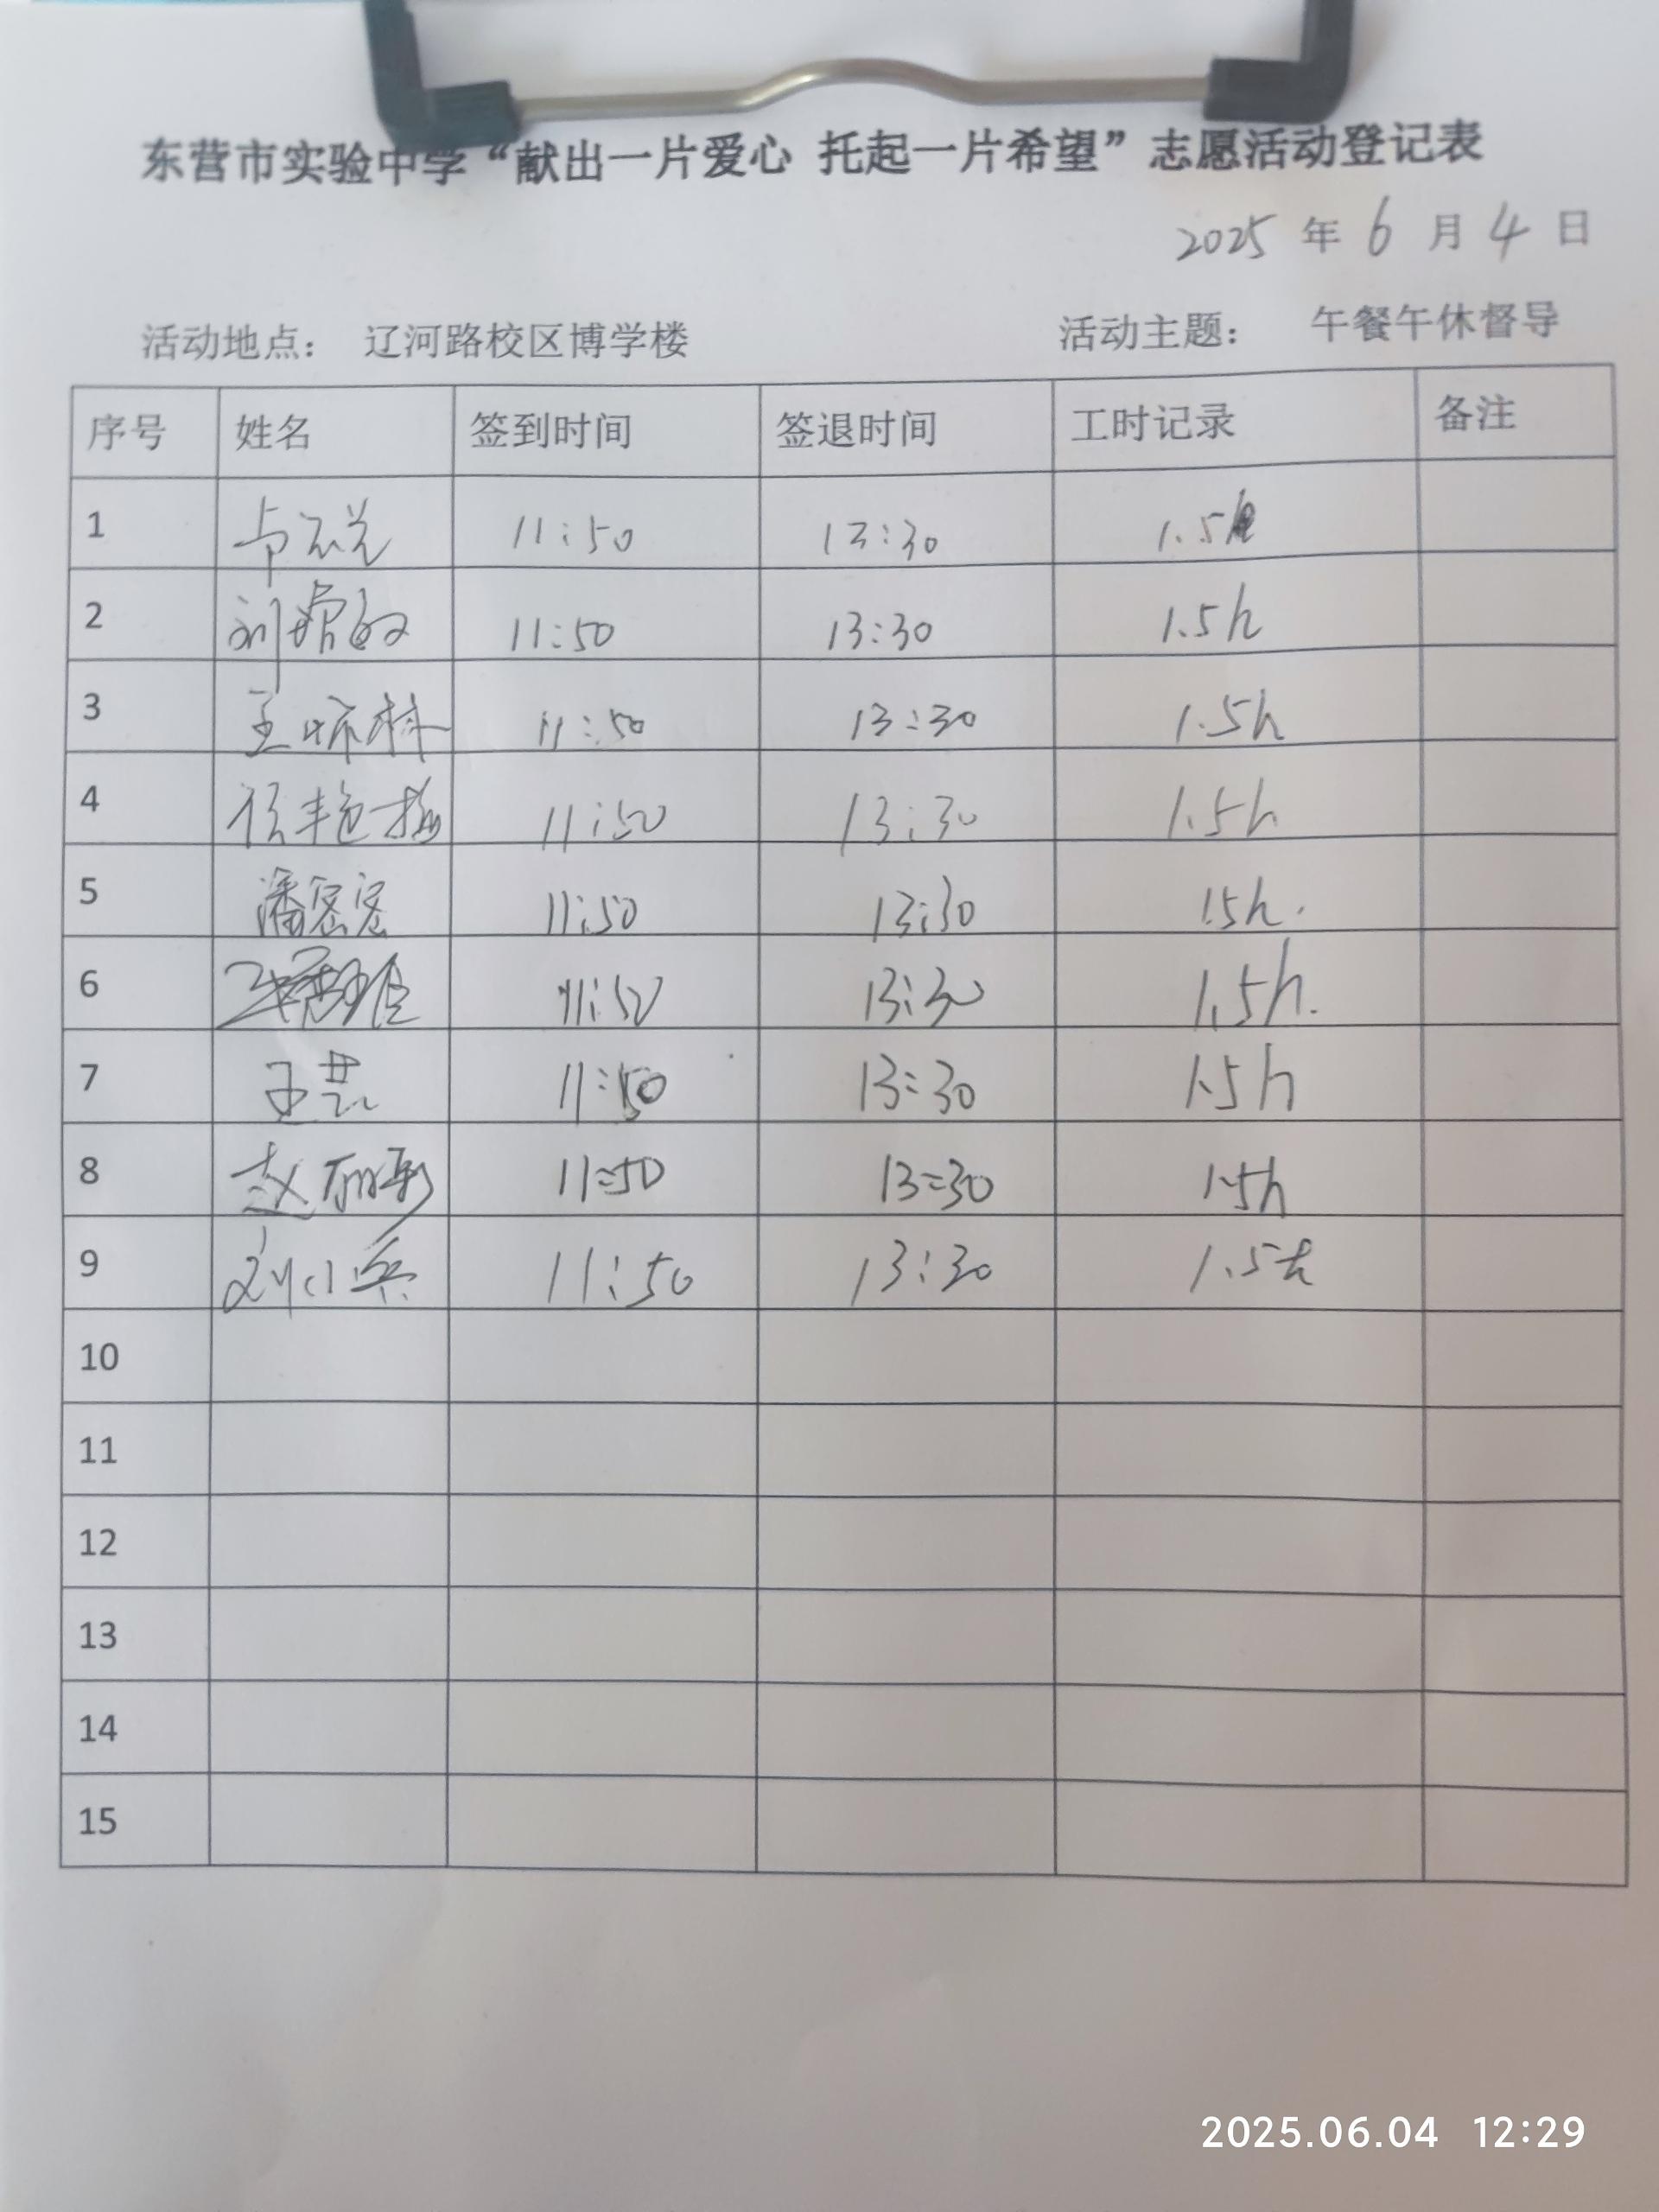 东营市实验中学“献出一片爱心 托起一片希望”志愿活动登记表
2025 年 6 月 4 日
活动地点： 辽河路校区博学楼 活动主题： 午餐午休督导
序号 姓名 签到时间 签退时间 工时记录 备注
1 11:50 13:30 1.5h
2 刘 11:50 13:30 1.5h
3 王 11:50 13:30 1.5h
4 侯艳梅 11:50 13:30 1.5h
5 潘密密 11:50 13:30 1.5h.
6 11:50 13:30 1.5h.
7 王芸 11:50 13:30 1.5h
8 赵丽彩 11:50 13:30 1.5h
9 刘小兵 11:50 13:30 1.5h
10
11
12
13
14
15
2025.06.04 12:29